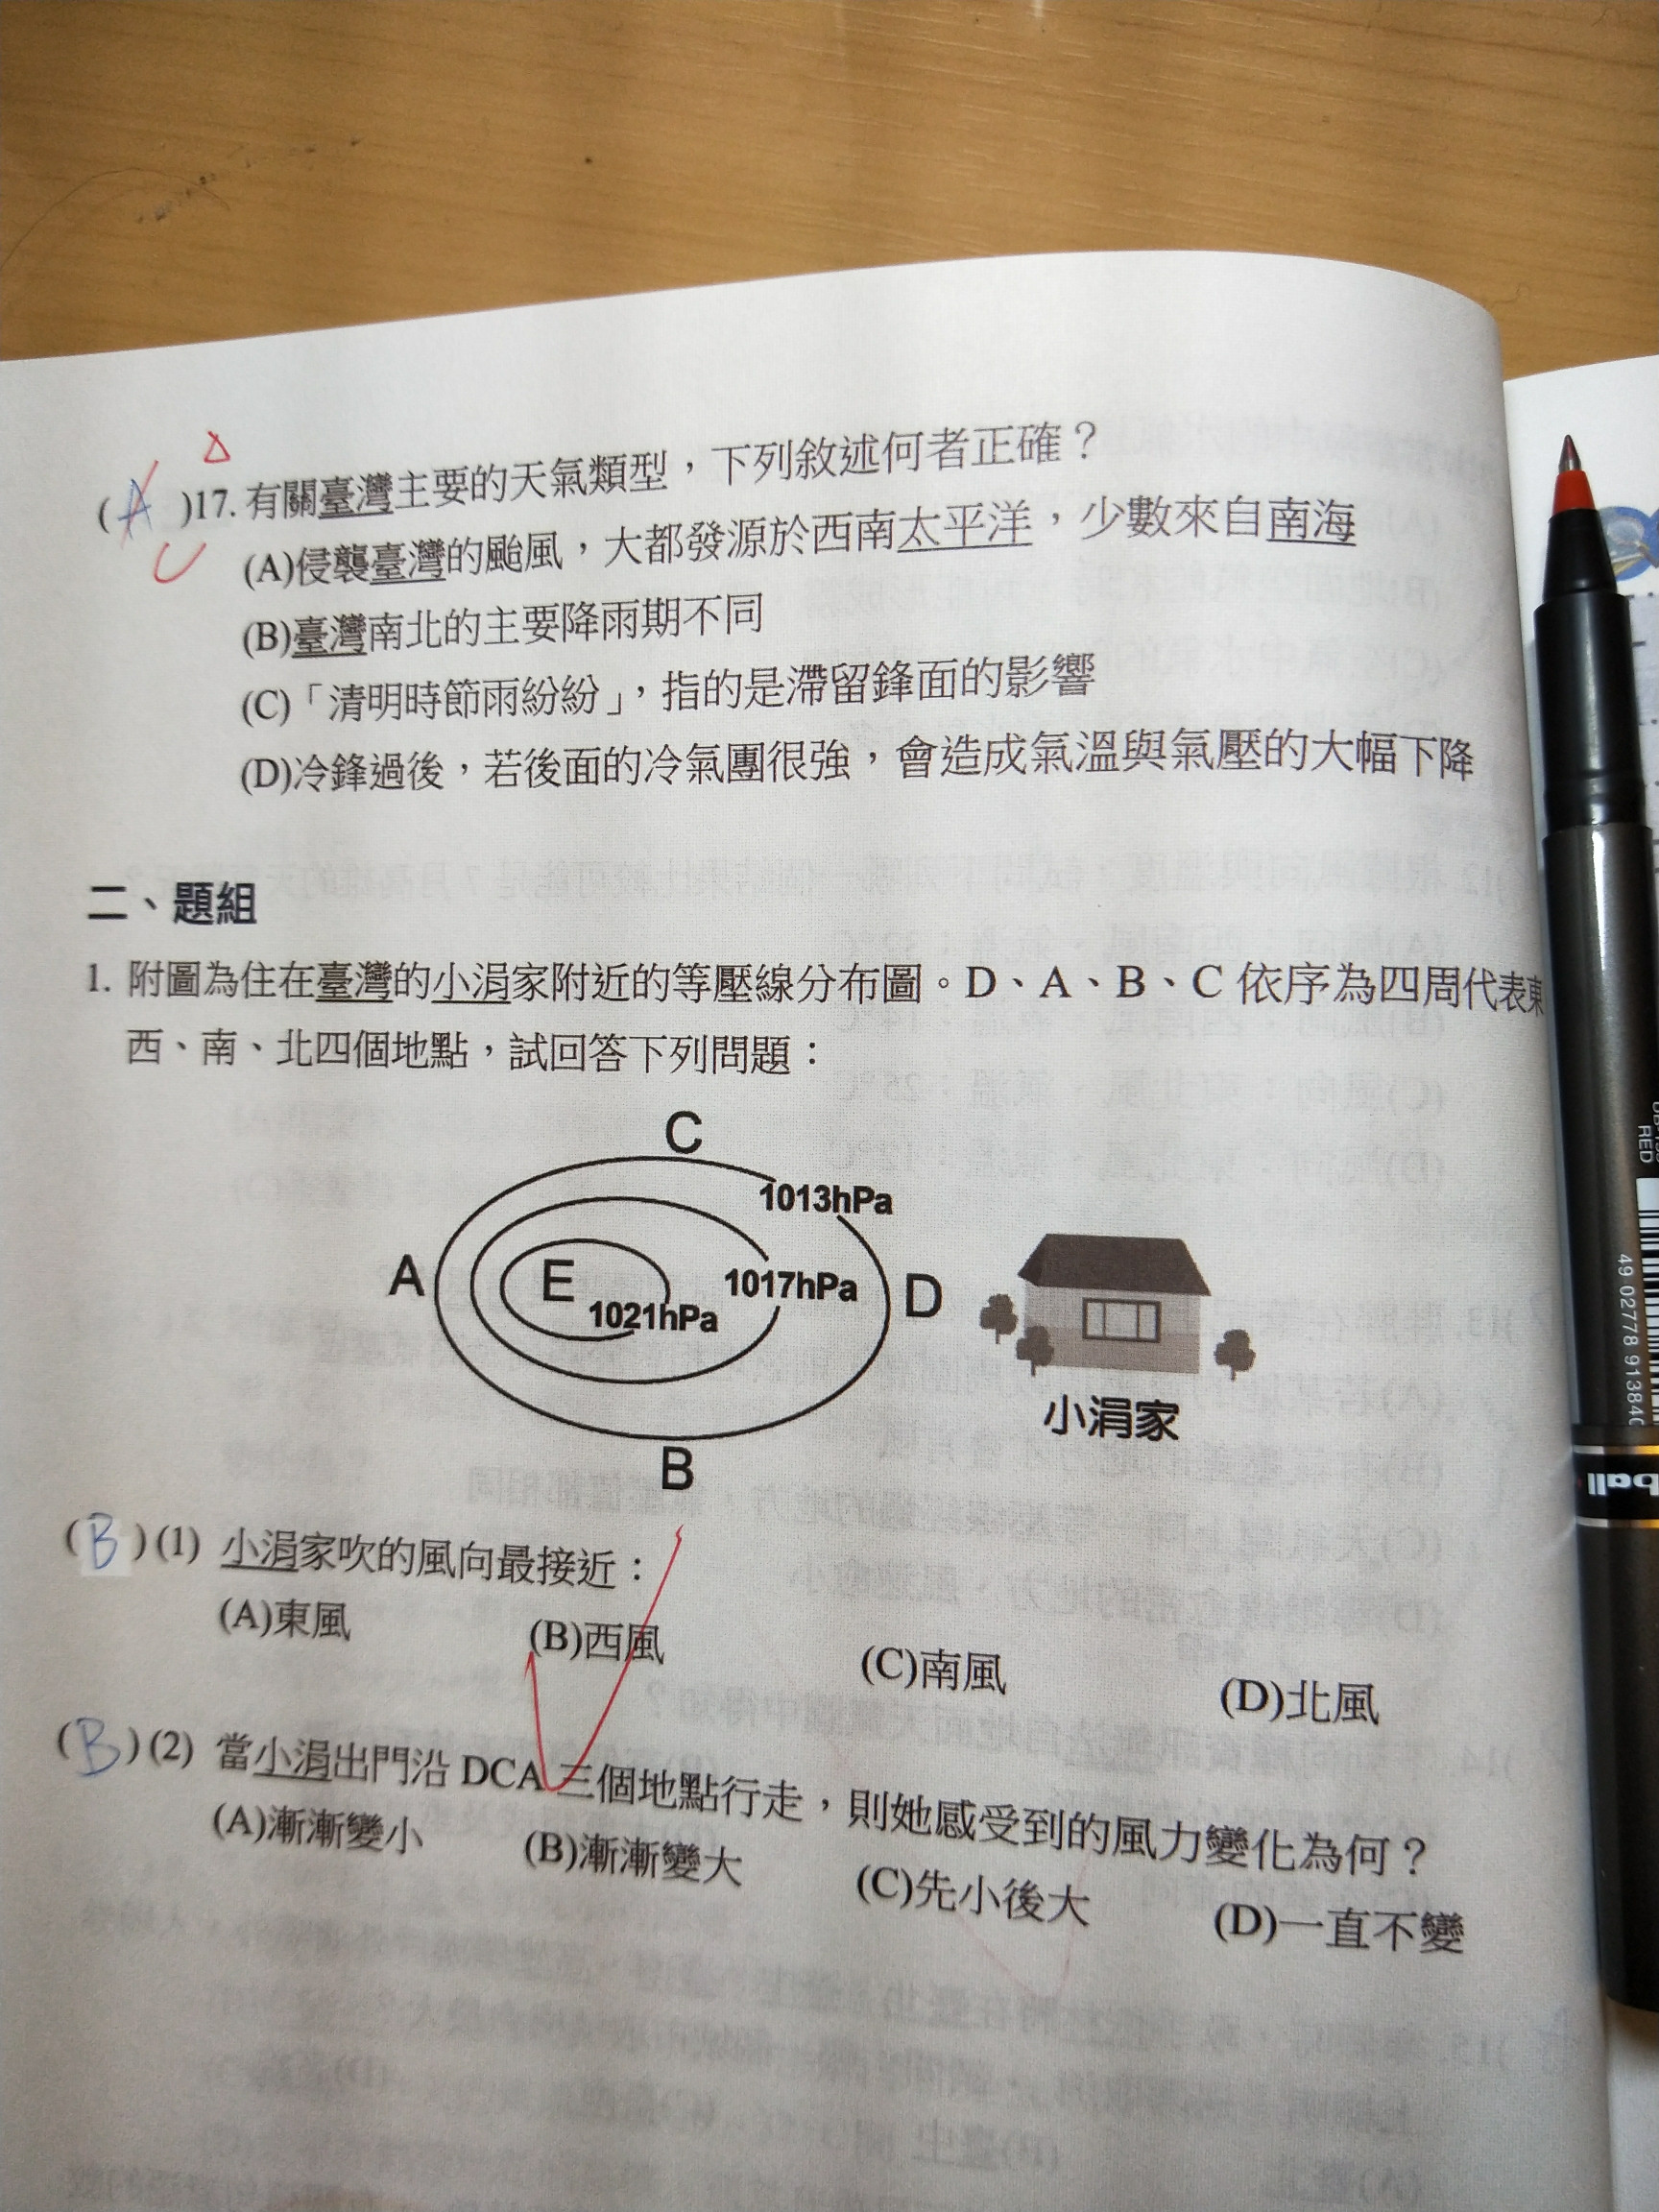 ( A )17. 有關臺灣主要的天氣類型，下列敘述何者正確？
(A)侵襲臺灣的颱風，大都發源於西南太平洋，少數來自南海
(B)臺灣南北的主要降雨期不同
(C)「清明時節雨紛紛」，指的是滯留鋒面的影響
(D)冷鋒過後，若後面的冷氣團很強，會造成氣溫與氣壓的大幅下降
二、題組
1. 附圖為住在臺灣的小涓家附近的等壓線分布圖。D、A、B、C 依序為四周代表東
西、南、北四個地點，試回答下列問題：
C
1013hPa
A
E
1021hPa
1017hPa
D
小涓家
B
( B )(1) 小涓家吹的風向最接近：
(A)東風 (B)西風 (C)南風 (D)北風
( B )(2) 當小涓出門沿 DCA 三個地點行走，則她感受到的風力變化為何？
(A)漸漸變小 (B)漸漸變大 (C)先小後大 (D)一直不變
RED
49 02778 91384
ball